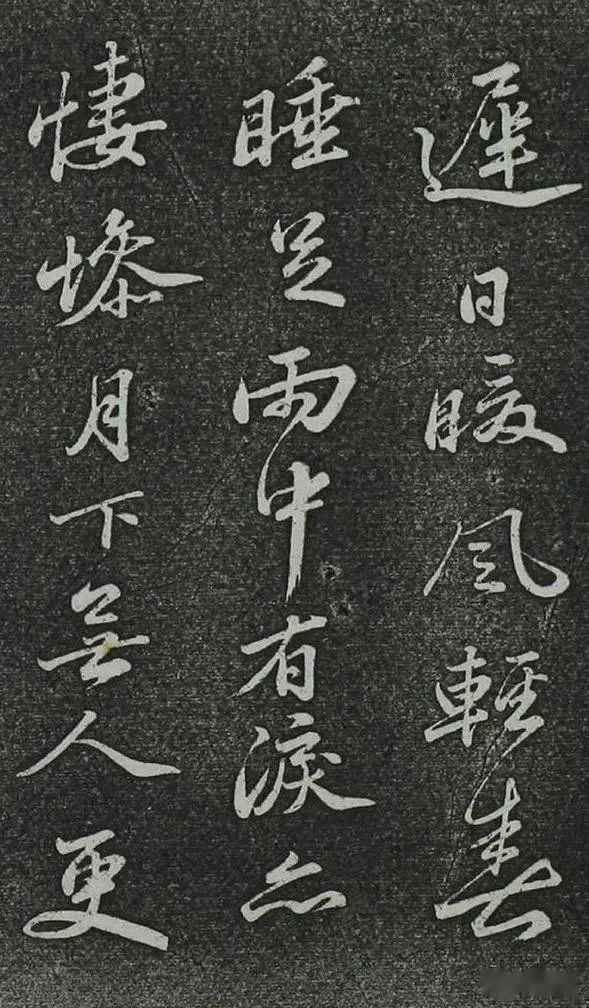 遲日暖風輕春
睡足雨中有淚亦
悽慘月下無人更